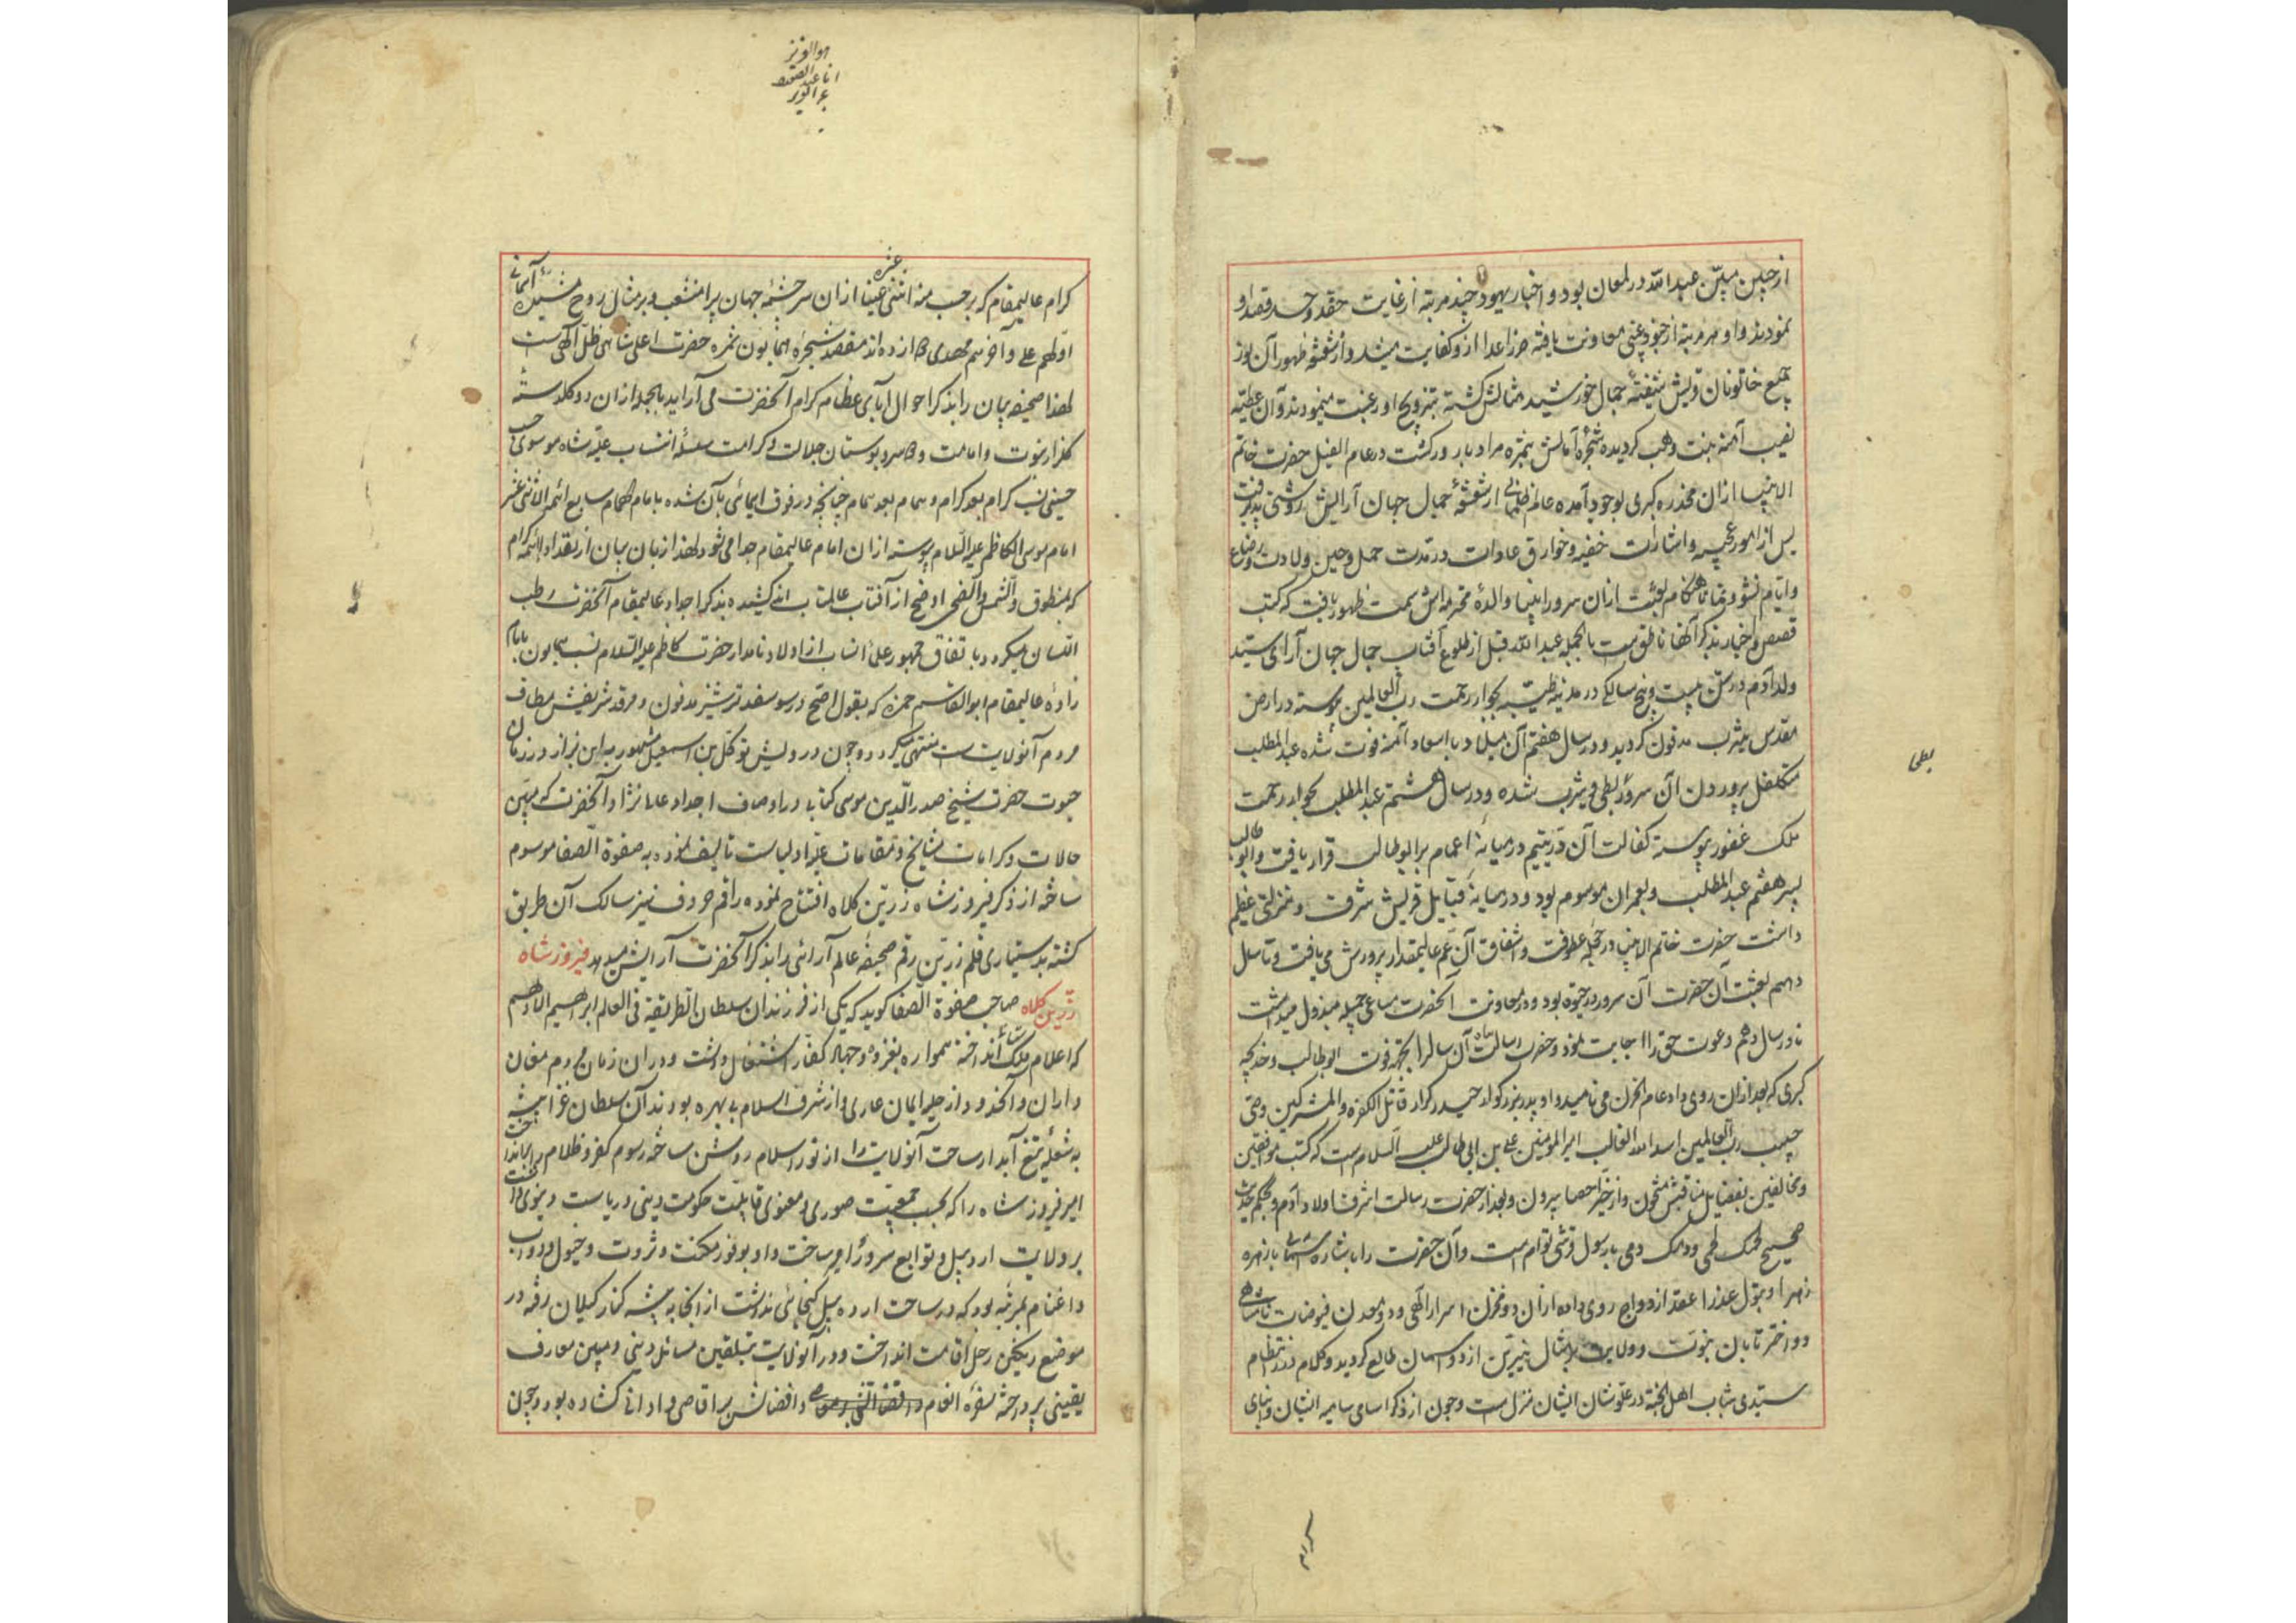 از جبین مبین عبدالله در لمعان بود و اخبار یهود چند مرتبه از غایت حقد و حسد قصد او
نمودند و او هر مرتبه از جنود غیبی معاونت یافته ضرر اعدا ازو کفایت میشد و از شعشعه ظهور آن نور
جمیع خاتونان قریش شیفتهٔ جمال خورشید مثالش گشته بتزویج او رغبت مینمودند و آن عطیّه
نصیب آمنه بنت وهب گردیده شجرهٔ آمالش بثمره مراد بارور گشت در عام الفیل حضرت خاتم
الانبیا ازان مخدره کبری بوجود آمده عالم ظلمانی از شعشعهٔ جمال جهان آرایش روشنی پذیرفت
پس از امور عجیبه و اشارات خفیه و خوارق عادات در مدت حمل و حین ولادت و رضاع
و ایام نشو و نما تا هنگام بعثت ازان سرور انبیا و والدهٔ محترمه‌اش سمت ظهور یافت که کتب
قصص و اخبار بذکر آنها ناطق است بالجمله عبدالله قبل از طلوع آفتاب جمال جهان آرای سید
ولد آدم در سن بیست و پنج سالگی در مدینه طیّبه بجوار رحمت رب العالمین پیوسته در ارض
مقدس یثرب مدفون گردید و در سال هفتم آن میلاد با اسعاد آمنه فوت شده عبدالمطلب
متکفل پروردن آن سرور بطحی و یثرب شده و در سال هشتم عبدالمطلب بجوار رحمت
ملک غفور پیوسته کفالت آن در یتیم در میانه اعمام بر ابوطالب قرار یافت و ابوطالب
پسر هفتم عبدالمطلب و بعمران موسوم بود و در میانه قبایل قریش شرف و منزلتی عظیم
داشت حضرت خاتم الانبیا در حجر عطوفت و اشفاق آن عم عالیمقدار پرورش می یافت و تا سال
دهم بعثت آن حضرت آن سرور در حیوة بود و در معاونت آنحضرت مساعی جمیله مبذول میداشت
تا در سال دهم دعوت حق را اجابت نمود و حضرت رسالت پناه آن سال را بجهته فوت ابوطالب و خدیجه
کبری که بعد ازان روی داد عام الحزن می نامید و او پدر بزرگوار حیدر کرار قاتل الکفره و المشرکین وصی
حبیب رب العالمین اسدالله الغالب امیر المومنین علی بن ابی طالب علیه السلام است که کتب موافقین
و مخالفین بفضایل مناقبش مشحون و از حیز احصا بیرون و بعد از حضرت رسالت اشرف اولاد آدم و بحکم حدیث
صحیح لحمک لحمی و دمک دمی با رسول قرشی توام است و آن حضرت را باشاره سماییّ با زهره
زهرا و بتول عذرا عقد ازدواج روی داده ازان دو مخزن اسرار الهی و دو معدن فیوضات نامتناهی
دو اختر تابان نبوت و ولایت بمثال نیرین از دو آسمان طالع گردید و کلام درر انتظام
سیدی شباب اهل الجنه در علوشان ایشان منزل است و چون از ذکر اسامی سامیه ایشان و ابنای
بطحا
هو العزیز
کرام عالیمقام که بر حسب منه اثنتی عشره عینا ازان سرچشمه جهان پیرا منشعب و بر مثال روح
اولهم علی و آخرهم مهدی مقصد شجره همایون ثمره حضرت اعلی شاهی ظل الهی است
لهذا صحیفه بیان را بذکر احوال آبای عظام کرام آنحضرت می آراید بالجمله ازان دو گلدسته
گلزار نبوت و امامت و دو سرو بوستان جلالت و کرامت سلسله انتساب علیّه شاه موسوی حسب
حسینی نسب کرام بعد کرام و همام بعد همام چنانچه در فوق ایمائی بآن شده بامام همام سابع ائمه الاثنی عشر
امام موسی الکاظم علیه السلام پیوسته ازان امام عالیمقام جدا می شود لهذا زبان بیان از تعداد ائمه کرام
که بمنطوق و الشمس و الضحی اوضح از آفتاب عالمتاب اند کشیده بذکر اجداد عالیمقام آنحضرت رطب
اللسان میگردد باتفاق جمهور علماء انساب از اولاد نامدار حضرت کاظم علیه السلام نسب همایون بامام
زادهٔ عالیمقام ابوالقاسم حمزه که بقول اصح در سو سفد ترشیز مدفون و مرقد شریفش مطاف
مردم آنولایت است منتهی میگردد و چون درویش توکل بن اسمعیل مشهور به ابن بزاز در زمان
حیوت حضرت شیخ صدر الدین موسی کتابی در اوصاف اجداد عالی نژاد آنحضرت که مبین
حالات و کرامات مشایخ و مقامات علیّه اولیاست تالیف نموده به صفوة الصفا موسوم
ساخته از ذکر فیروز شاه زرین کلاه افتتاح نموده راقم حروف نیز سالک آن طریق
گشته بدستیاری قلم زرین رقم صحیفه عالم آرائی را بذکر آنحضرت آرایش میدهد فیروز شاه
زرین کلاه صاحب صفوة الصفا گوید که یکی از فرزندان سلطان الطریقة فی العالم ابراهیم الادهم
که اعلام ملک ستانی انداخته همواره بغزوه و جهاد کفار اشتغال داشت و دران زمان مردم مغان
و اران و آنحدود از حلیه ایمان عاری و از شرف اسلام بی بهره بودند آن سلطان غزا پیشه
به شعلهٔ تیغ آبدار ساحت آنولایت را از نور اسلام روشن ساخته رسوم کفر و ظلام
امیر فیروز شاه را که بحسب جمعیت صوری و معنوی قابلیّت حکومت دینی و ریاست دنیوی داشت
بر ولایت اردبیل و توابع سرور و امیر ساخت و او بوفور مکنت و ثروت و خیول و دواب
و اغنام بمرتبه بود که در ساحت اردبیل گنجائی نداشت از آنجا به بیشه کنار گیلان رفته در
موضع رنگین رحل اقامت انداخت و در آنولایت بتلقین مسائل دینی و تبیین معارف
یقینی پرداخته سفره انعام و افضالش بر اقاصی و ادانی گشاده بود و چون